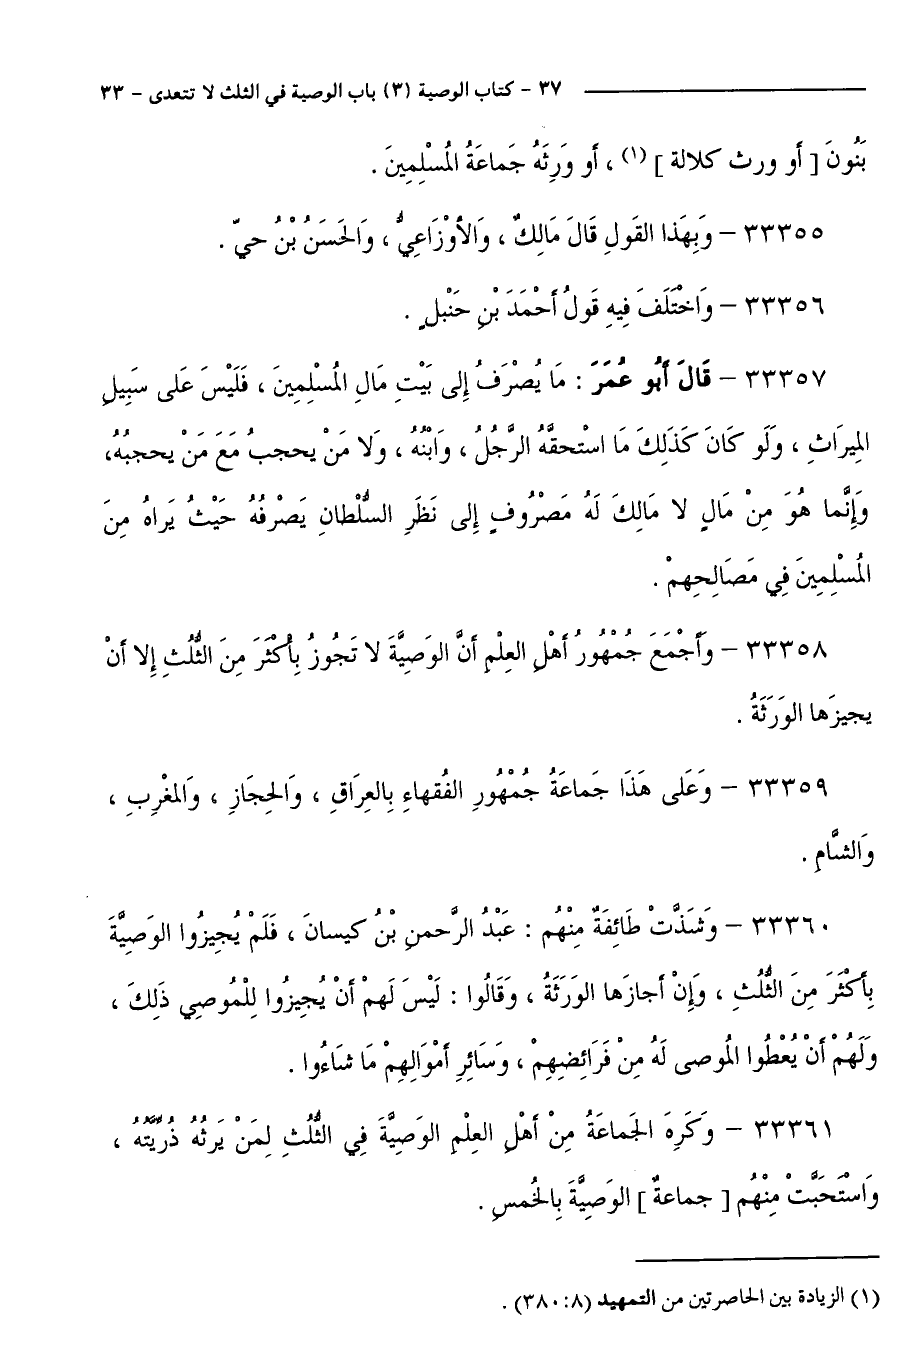 ٣٧ - كتاب الوصية (٣) باب الوصية في الثلث لا تتعدى - ٣٣
بَنُونَ [ أو ورث كلالة ] (١) ، أو وَرِثَهُ جَماعَةُ المُسْلِمِينَ .
٣٣٣٥٥ - وَبِهَذا القَولِ قَالَ مَالِكٌ ، وَالأوْزَاعِيُّ ، وَالحَسَنُ بْنُ حيّ .
٣٣٣٥٦ - وَاخْتَلَفَ فِيهِ قَولُ أَحْمَدَ بْنِ حَنْبلٍ .
٣٣٣٥٧ - قَالَ أَبُو عُمَرَ : مَا يُصْرَفُ إِلى بَيْتِ مَالِ المُسْلِمِينَ ، فَلَيْسَ عَلى سَبِيلِ
المِيرَاثِ ، وَلَو كَانَ كَذَلِكَ مَا استْحقَّهُ الرَّجُلُ ، وَابْنُهُ ، وَلا مَنْ يحجبُ مَعَ مَنْ يحجبُهُ،
وَإِنَّما هُوَ مِنْ مَالٍ لا مَالِكَ لَهُ مَصْرُوفٍ إِلى نَظَرِ السُّلْطانِ يَصْرفُهُ حَيْثُ يَراهُ مِنَ
المُسْلِمِينَ فِي مَصَالِحِهمْ .
٣٣٣٥٨ - وَأَجْمَعَ جُمْهُورُ أَهْلِ العِلْمِ أَنَّ الوَصِيَّةَ لا تَجُوزُ بِأَكْثَرَ مِنَ الثُّلُثِ إِلا أَنْ
يجيزَها الوَرَثَةُ .
٣٣٣٥٩ - وَعَلى هَذَا جَماعَةُ جُمْهُورِ الفُقهاءِ بِالعِراَقِ ، وَالحِجَازِ ، وَالمغْرِبِ ،
وَالشَّامِ .
٣٣٣٦٠ - وَشَذَّتْ طَائِفَةٌ مِنْهُم : عَبْدُ الرَّحمنِ بْنُ كيسانَ ، فَلَمْ يُجِيزُوا الوَصِيَّةَ
بِأَكْثَرَ مِنَ الثُّلُثِ ، وَإِنْ أجازَها الوَرَثَةُ ، وَقَالُوا : لَيْسَ لَهمْ أَنْ يُجِيزُوا لِلْمُوصِي ذَلِكَ ،
وَلَهُمْ أَنْ يُعْطُوا المُوصى لَهُ مِنْ فَرَائضِهِمْ ، وَسَائِرِ أَمْوَالِهِمْ مَا شَاءُوا .
٣٣٣٦١ - وَكَرِهَ الجَماعَةُ مِنْ أَهْلِ العِلْمِ الوَصِيَّةَ فِي الثُّلُثِ لِمَنْ يَرثهُ ذُرِّيَّتُهُ ،
وَاسْتَحَبَّتْ مِنْهُم [ جماعةٌ ] الوَصِيَّةَ بِالخُمسِ .
(١) الزيادة بين الحاصرتين من التمهيد (٨ : ٣٨٠) .